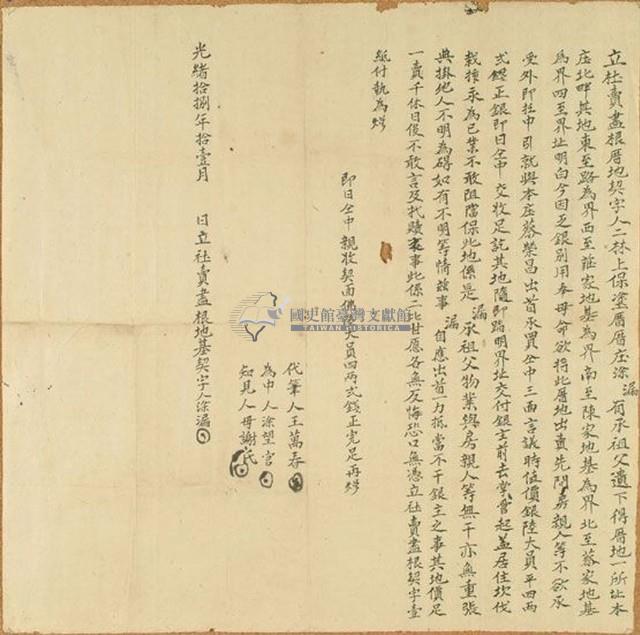 立杜賣盡根厝地契字人二林上保塗厝厝庄涂漏有承祖父遺下得厝地一所址本
庄北畔其地東至路為界西至蔴家地基為界南至陳家地基為界北至蔡家地基
為界四至界址明白今因乏銀別用奉母命欲將此厝地出賣先問房親人等不欲承
受外即托中引就與本庄蔡榮昌出首承買仝中三面言議時值價銀陸大員平四兩
弍錢正銀即日仝中交收足訖其地隨即踏明界址交付銀主前去掌管起蓋居住坎伐
栽種永為己業不敢阻當保此地係是漏承祖父物業與房親人等無干亦無重張
典掛他人不明為碍如有不明等情敝事漏自應出首一力抵當不干銀主之事其地價足
一賣千休日後不敢言及找贖衣事此係二比甘愿各無反悔恐口無憑立杜賣盡根契字壹
紙付執為炤
即日仝中親收契面佛銀陸大員四兩弍錢正完足再炤
代筆人王萬春
為中人涂望官
知見人母謝氏
光緒拾捌年拾壹月 日立杜賣盡根地基契字人涂漏
國史館臺灣文獻館
TAIWAN HISTORICA